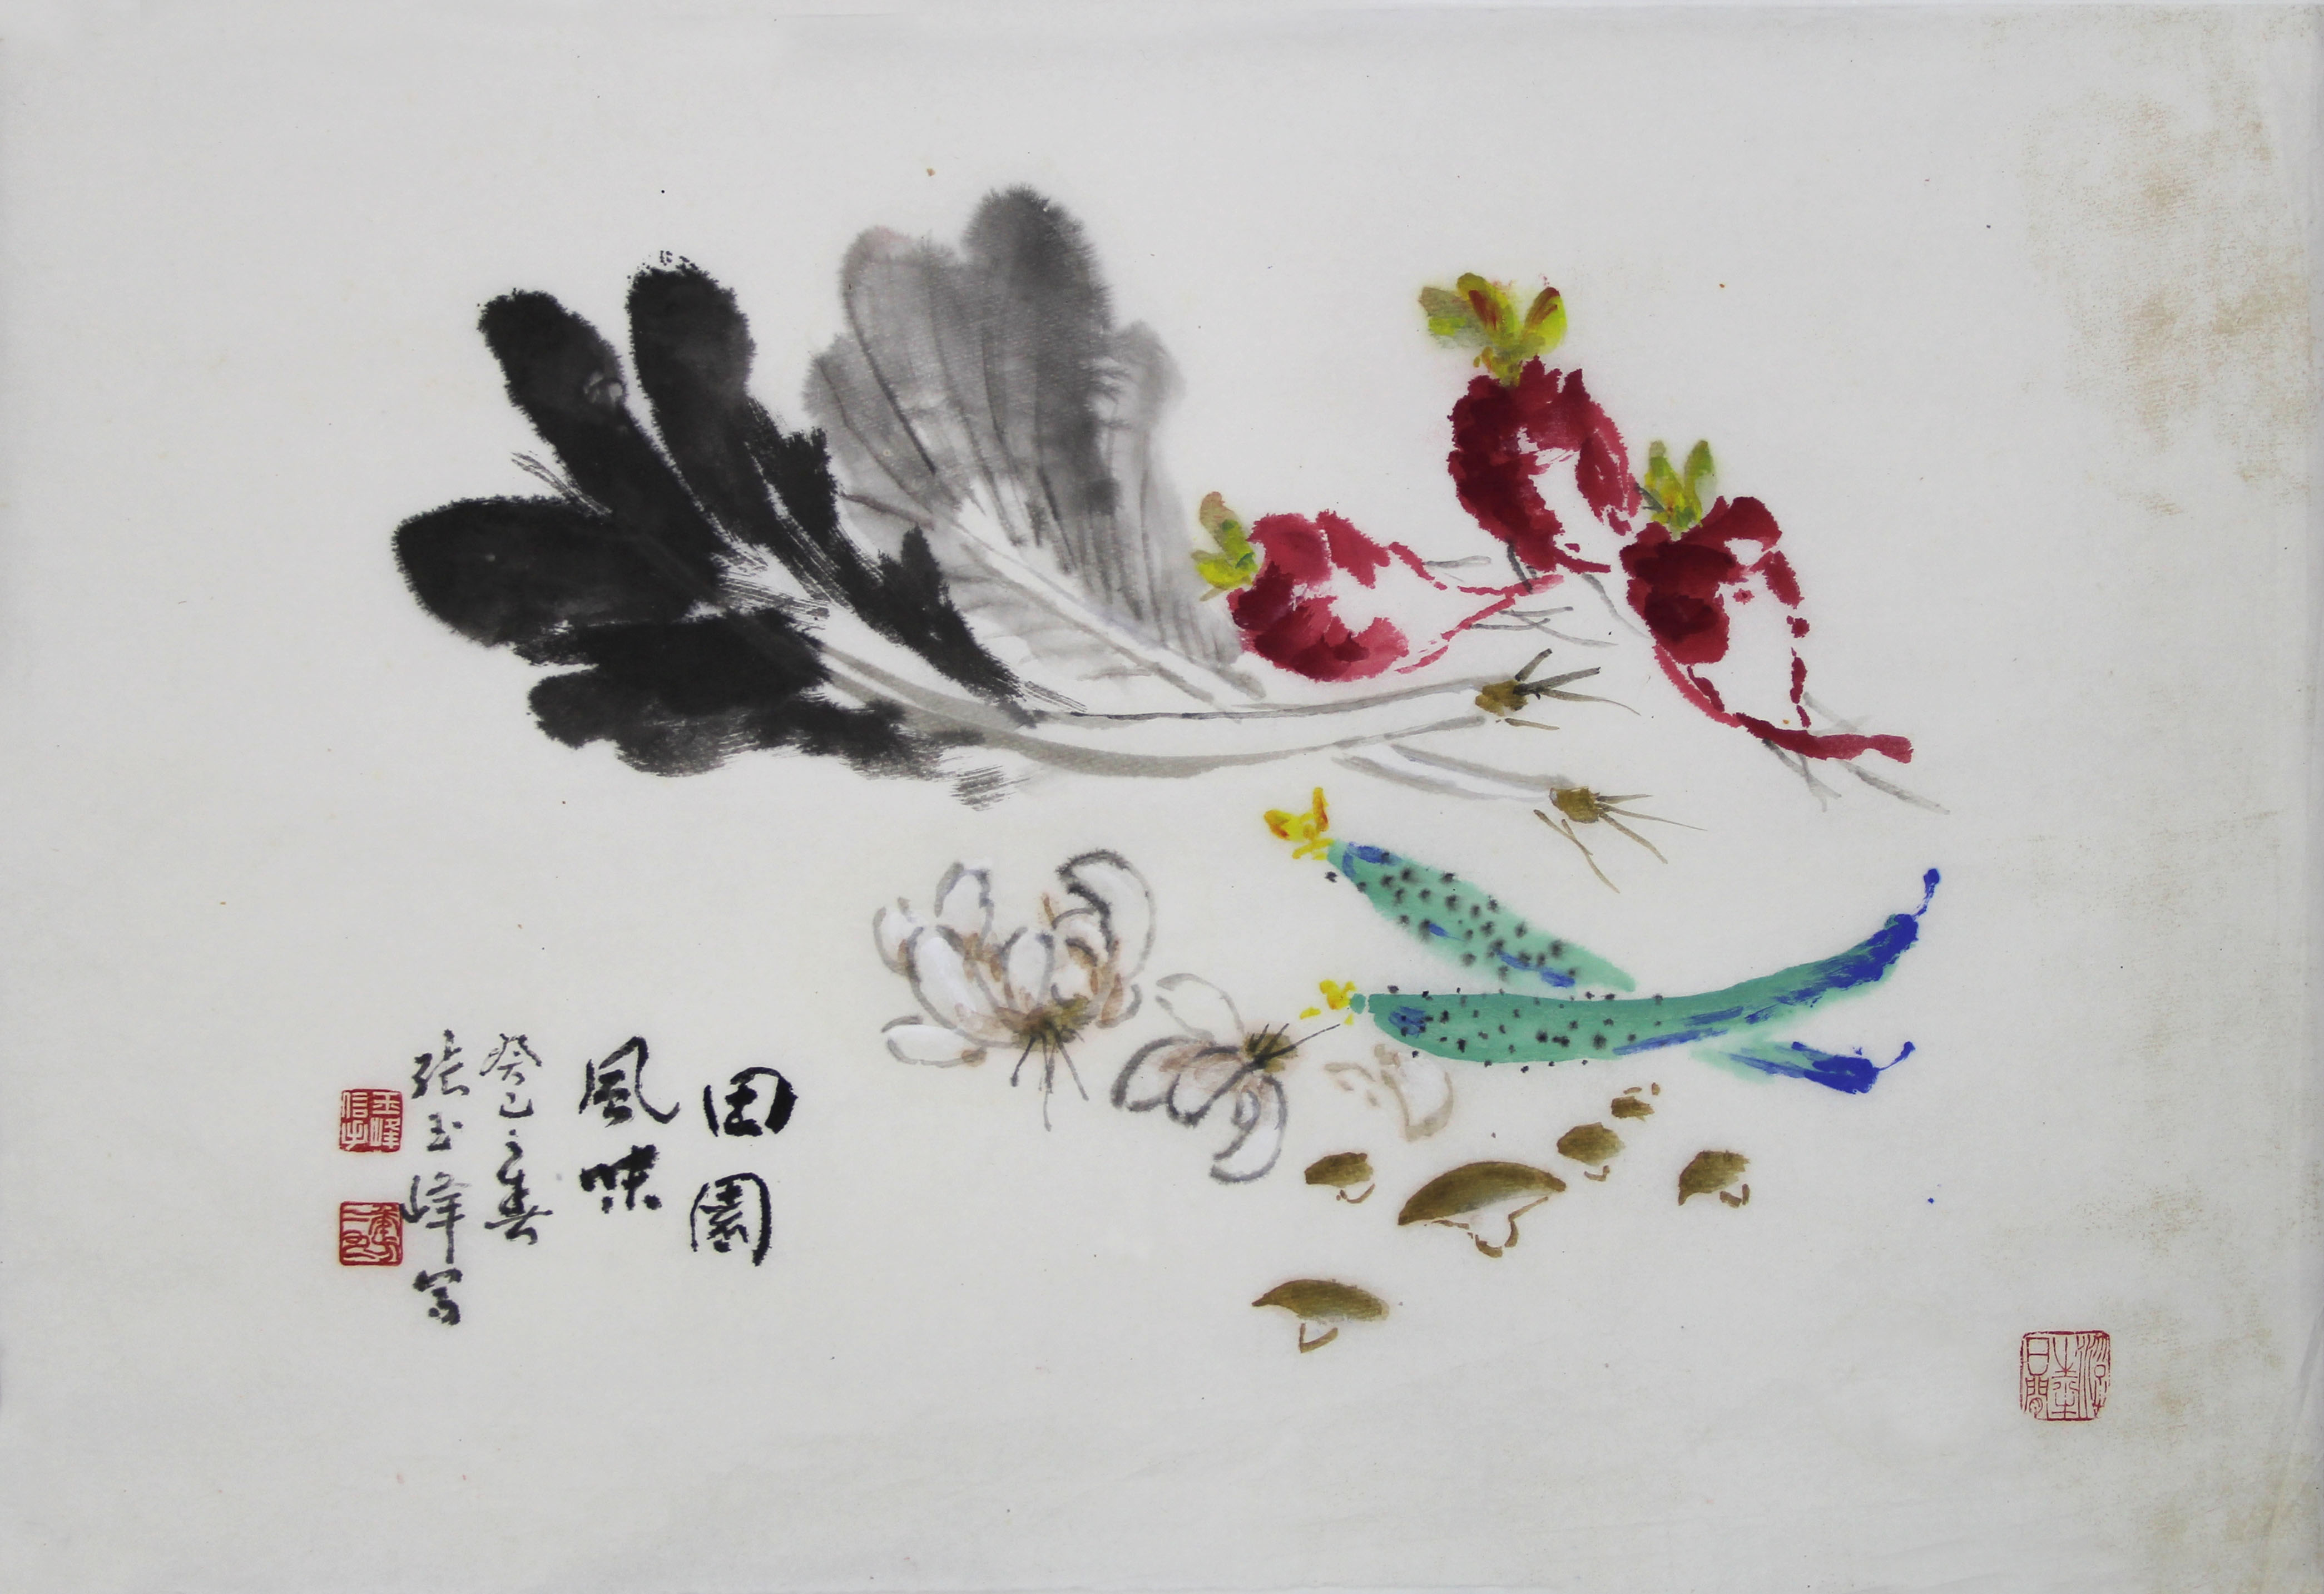 田園
風味
癸巳之春
張玉峰写
玉峰
信手